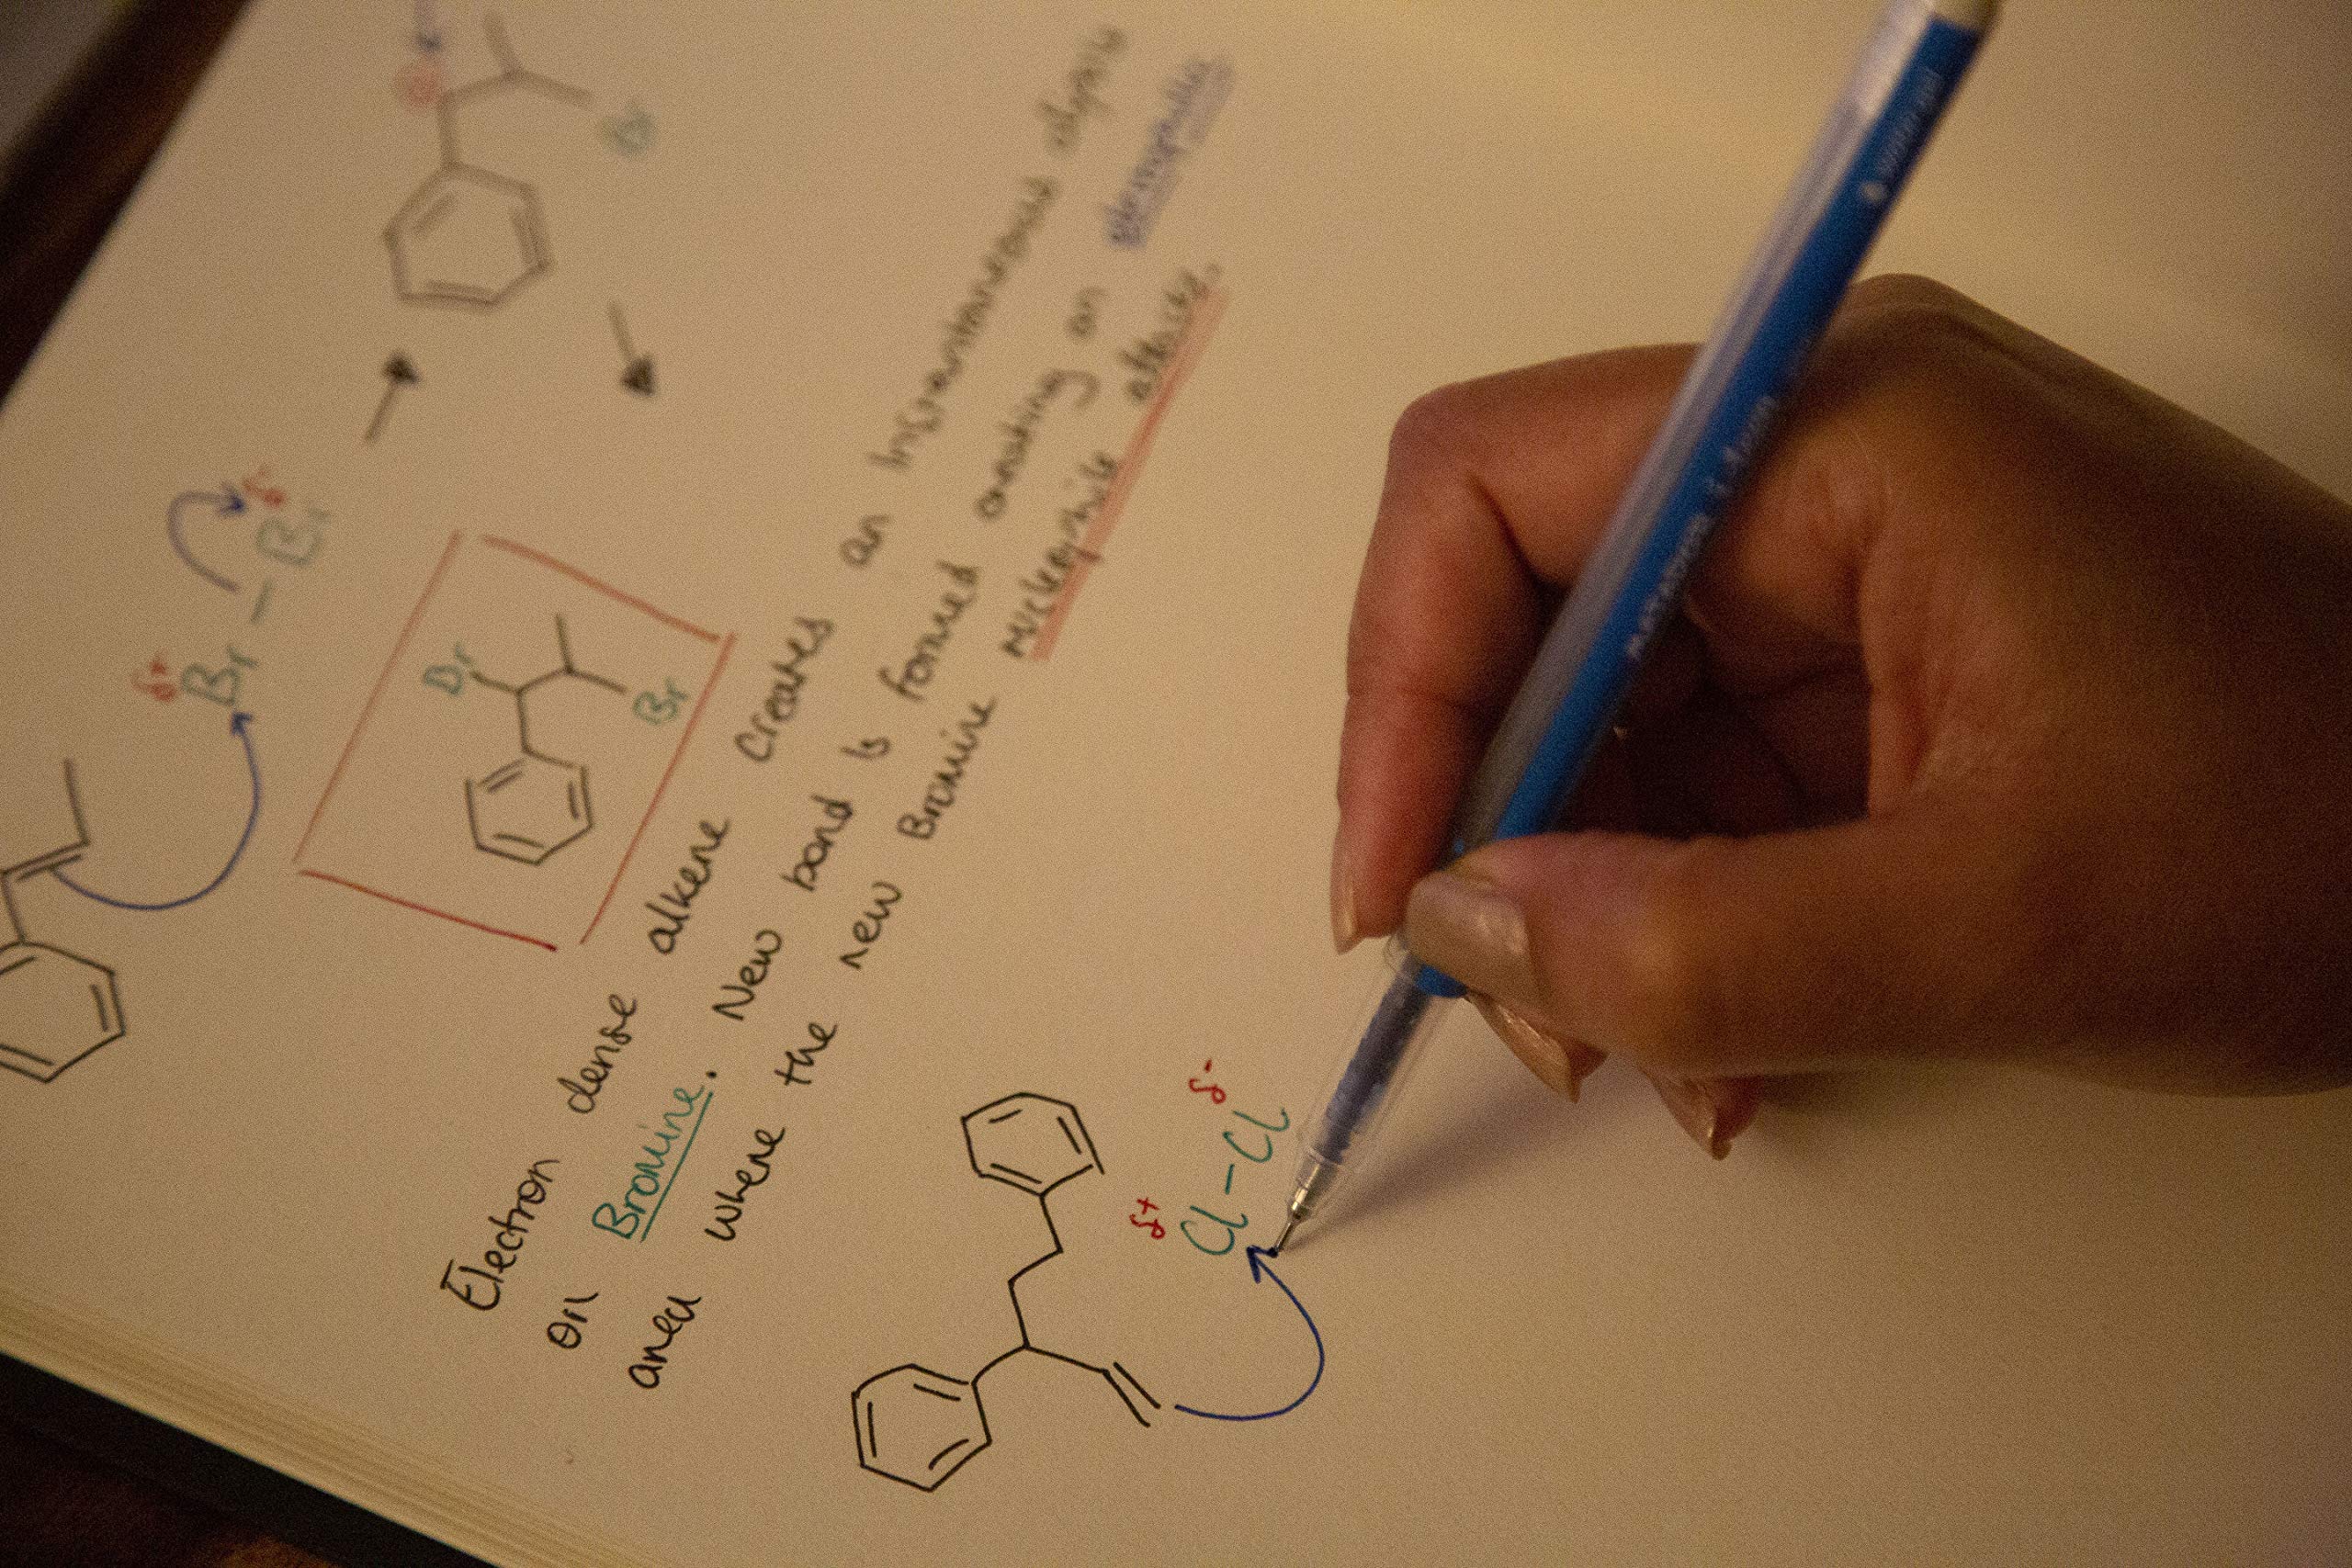 Br
δ+ δ-
Br – Br
Br
Br
Electron dense alkene creates an instantaneous
on Bromine. New bond is formed creating an
area where the new Bromine nucleophile attacks.
δ+ δ-
Cl – Cl